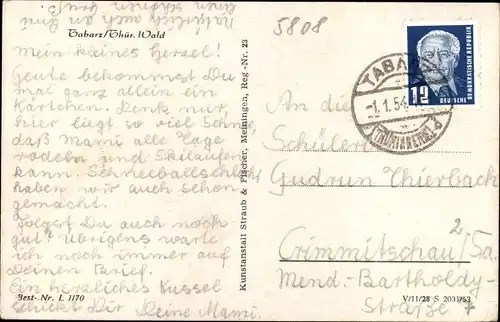 Natürlich auch an Omi
einen schönen Gruß.
5808
Tabarz/Thür. Wald
Mein kleines Herzel!
Heute bekommst Du
mal ganz allein ein
Kärtchen. Denk nur,
hier liegt so viel Schnee,
daß Mami alle Tage
rodeln und Skilaufen
kann. Schneeballschlacht
haben wir auch schon
gemacht.
Folgst Du auch noch
gut? Übrigens warte
ich noch immer auf
Deinen Brief.
Ein herzliches Küssel
schickt Dir Deine Mami.
Best.-Nr. L 1170
Kunstanstalt Straub & Fischer, Meiningen, Reg.-Nr. 23
DEUTSCHE DEMOKRATISCHE REPUBLIK
12 DEUTSCHE POST
TABARZ
-1.1.54
(THÜRINGERWALD)
An die
Schülerin
Gudrun Thierbach
Crimmitschau/Sa.
Mend.-Bartholdy-
Straße 2
V/11/28 S 2031/53